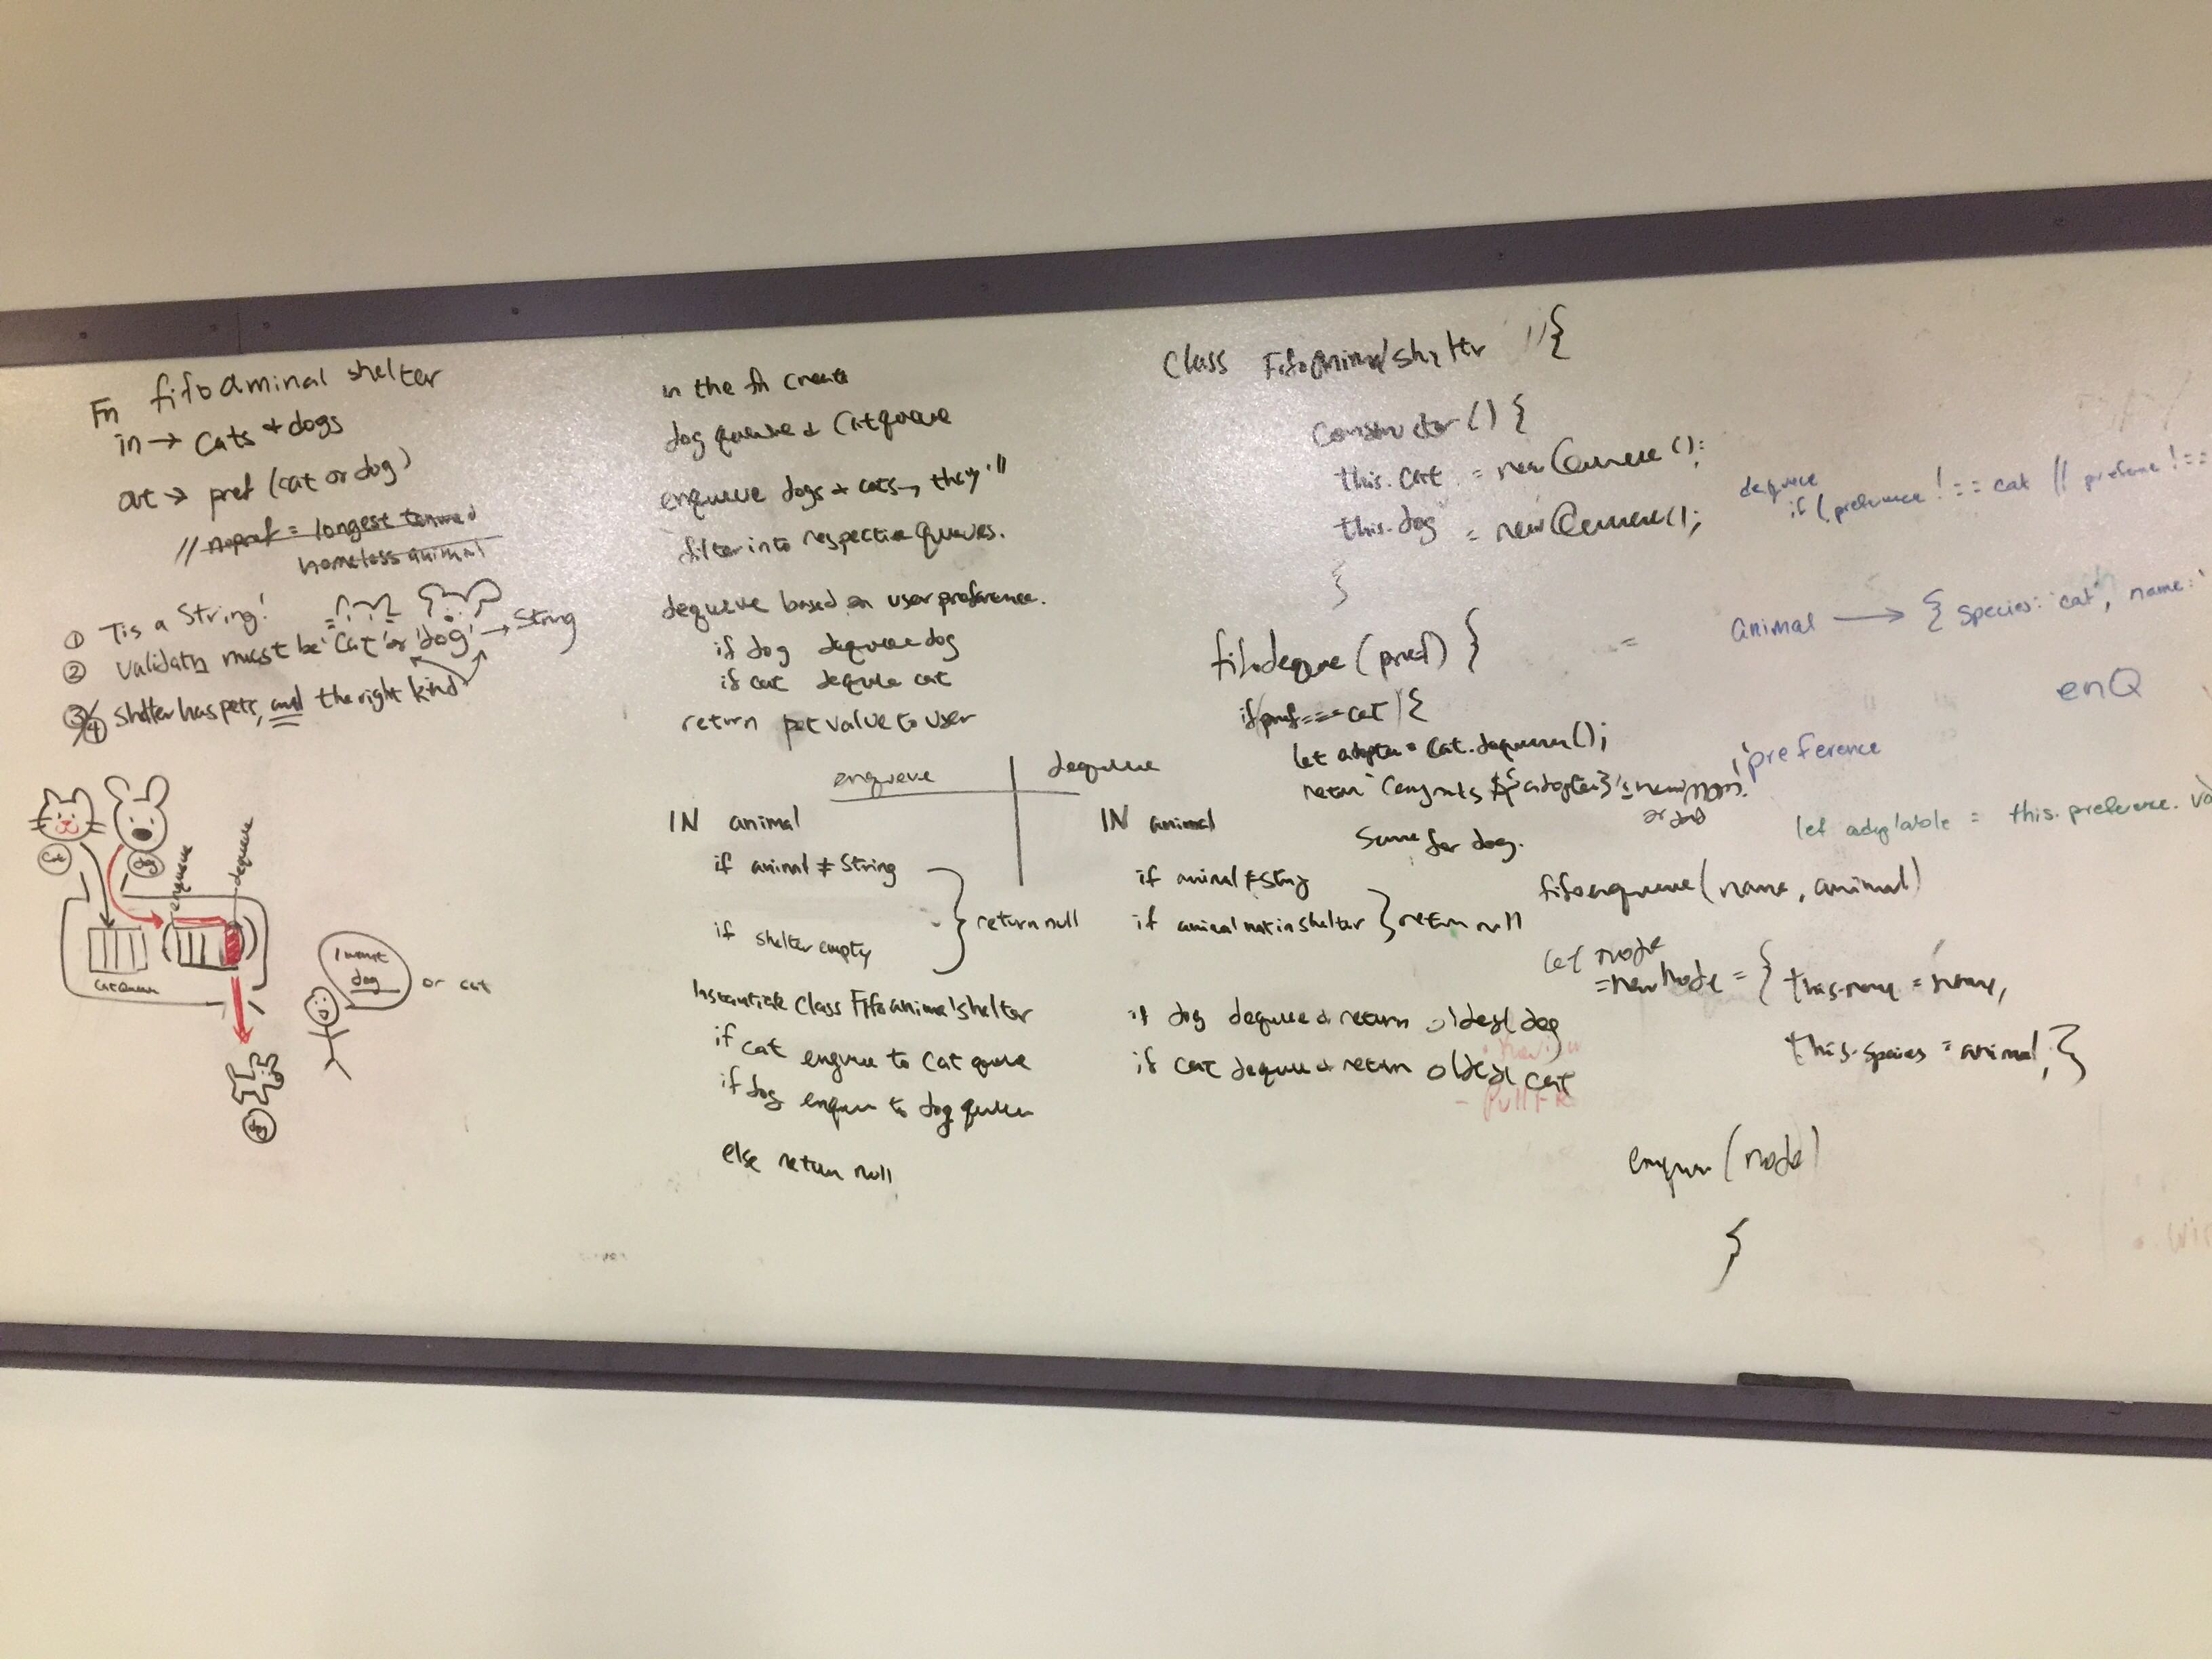 Fn fifoaminal shelter
in → cats + dogs
out → pref (cat or dog)
// nopref = longest
homeless animal
① Tis a String!
② Validatn must be 'cat' or 'dog' → String
③/④ Shelter has pets, and the right kind
cat
dog
enqueue
dequeue
I want
dog
or cat
dog
in the fn create
dog queue & Catqueue
enqueue dogs + cats, they'll
filter into respective queues.
dequeue based on user preference.
if dog dequeue dog
if cat dequeue cat
return pet value to user
enqueue
IN animal
if animal ≠ String
if shelter empty
return null
Instantiate Class Fifoanimalshelter
if cat enqueue to cat queue
if dog enqueue to dog queue
else return null
dequeue
IN animal
if animal ≠ String
if animal not in shelter
return null
if dog dequeue & return oldest dog
if cat dequeue & return oldest cat
Class FifoAnimalShelter {
Constructor () {
this.cat = new Queue();
this.dog = new Queue();
}
fifodequeue (pref) {
if pref === cat ) {
let adoptee = cat.dequeue();
return `Congrats ${adoptee}'s new mom.
or dad
Same for dog.
fifoenqueue (name, animal)
let node
= new Node = { this.name = name,
this.species = animal; }
enqueue (node)
}
dequeue
if (preference !== cat || preference !==
animal → { species: 'cat', name: '
enQ
preference
let = this.preference.